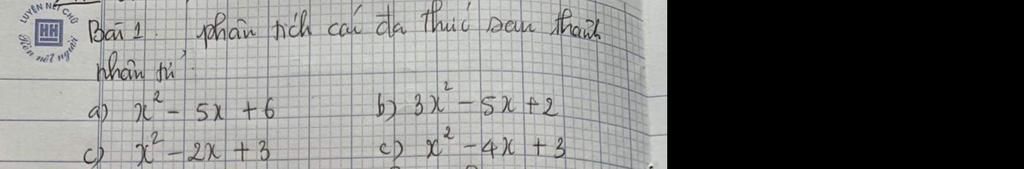 LUYỆN NÉT CHỮ
HH
Rèn nết người
Bài 1. phân tích các đa thức sau thành
nhân tử
a) x² - 5x + 6 b) 3x² - 5x + 2
c) x² - 2x + 3 c) x² - 4x + 3